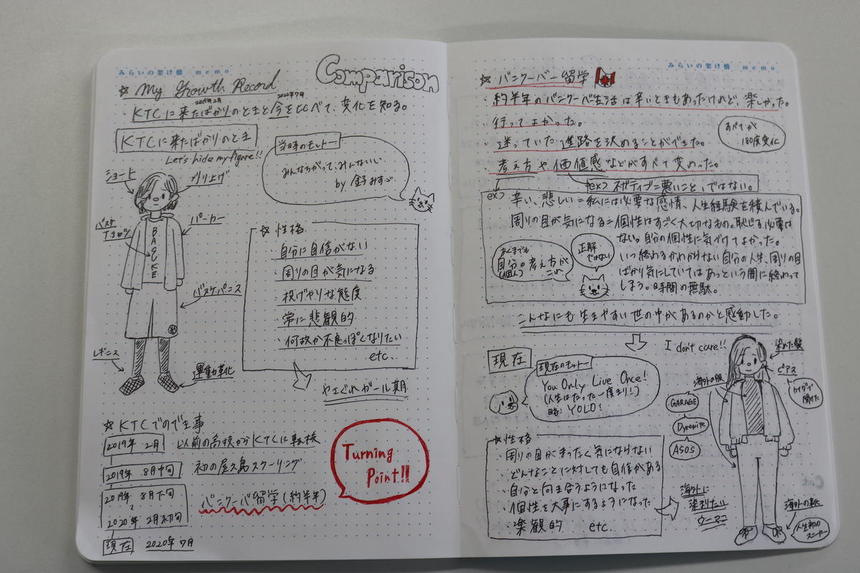 みらいの架け橋 memo
☆ My Growth Record
Comparison
・KTCに来たばかりのときと今を比べて、変化を知る。
2019年2月
2020年7月
KTCに来たばかりのとき
Let's hide my figure!!
ショート
刈り上げ
パーカー
バスケTシャツ
BASKE
バスケパンス
レギンス
運動靴
当時のモットー
みんなちがって、みんないい
by 金子みすゞ
☆ 性格
・自分に自信がない
・周りの目が気になる
・投げやりな態度
・常に悲観的
・何故か不良っぽくなりたい
etc.
やさぐれガール期
☆ KTCでのでき事
2019年 2月
以前の高校からKTCに転校
2019年 8月中旬
初の屋久島スクーリング
2019年 8月下旬
~
2020年 2月初旬
バンクーバー留学(約半年)
現在 2020年 7月
Turning Point!!
みらいの架け橋 memo
☆ バンクーバー留学
・約半年のバンクーバー生活は辛いときもあったけれど、楽しかった。
・行ってよかった。
・迷っていた進路を決めることができた。
・考え方や価値感などがすべて変わった。
すべてが180度変化
ex> ネガティブ=悪いこと、ではない。
ex>
辛い、悲しい=私には必要な感情、人生経験を積んでいる。
周りの目が気になる=個性はすごく大切なもの。恥じる必要はない。自分の個性に気づけてよかった。
いつ終わるかわからない自分の人生、周りの目ばかり気にしていてはあっという間に終わってしまう。時間の無駄。
あくまでも自分の考え方が
(個人)
正解ではない
こんなにも生きやすい世の中があるのかと感動した。
現在
現在のモットー
You Only Live Once!
(人生はたった一度きり!)
略:YOLO!
I don't care!!
染めた髪
ピアス
カナダで開けた
海外の服
GARAGE
Dynamite
ASOS
海外の靴
人生初のスニーカー
☆性格
・周りの目がまったく気にならない
・どんなことに対しても自信がある
・自分と向き合うようになった
・個性を大事にするようになった
・楽観的 etc.
海外に染まりたい